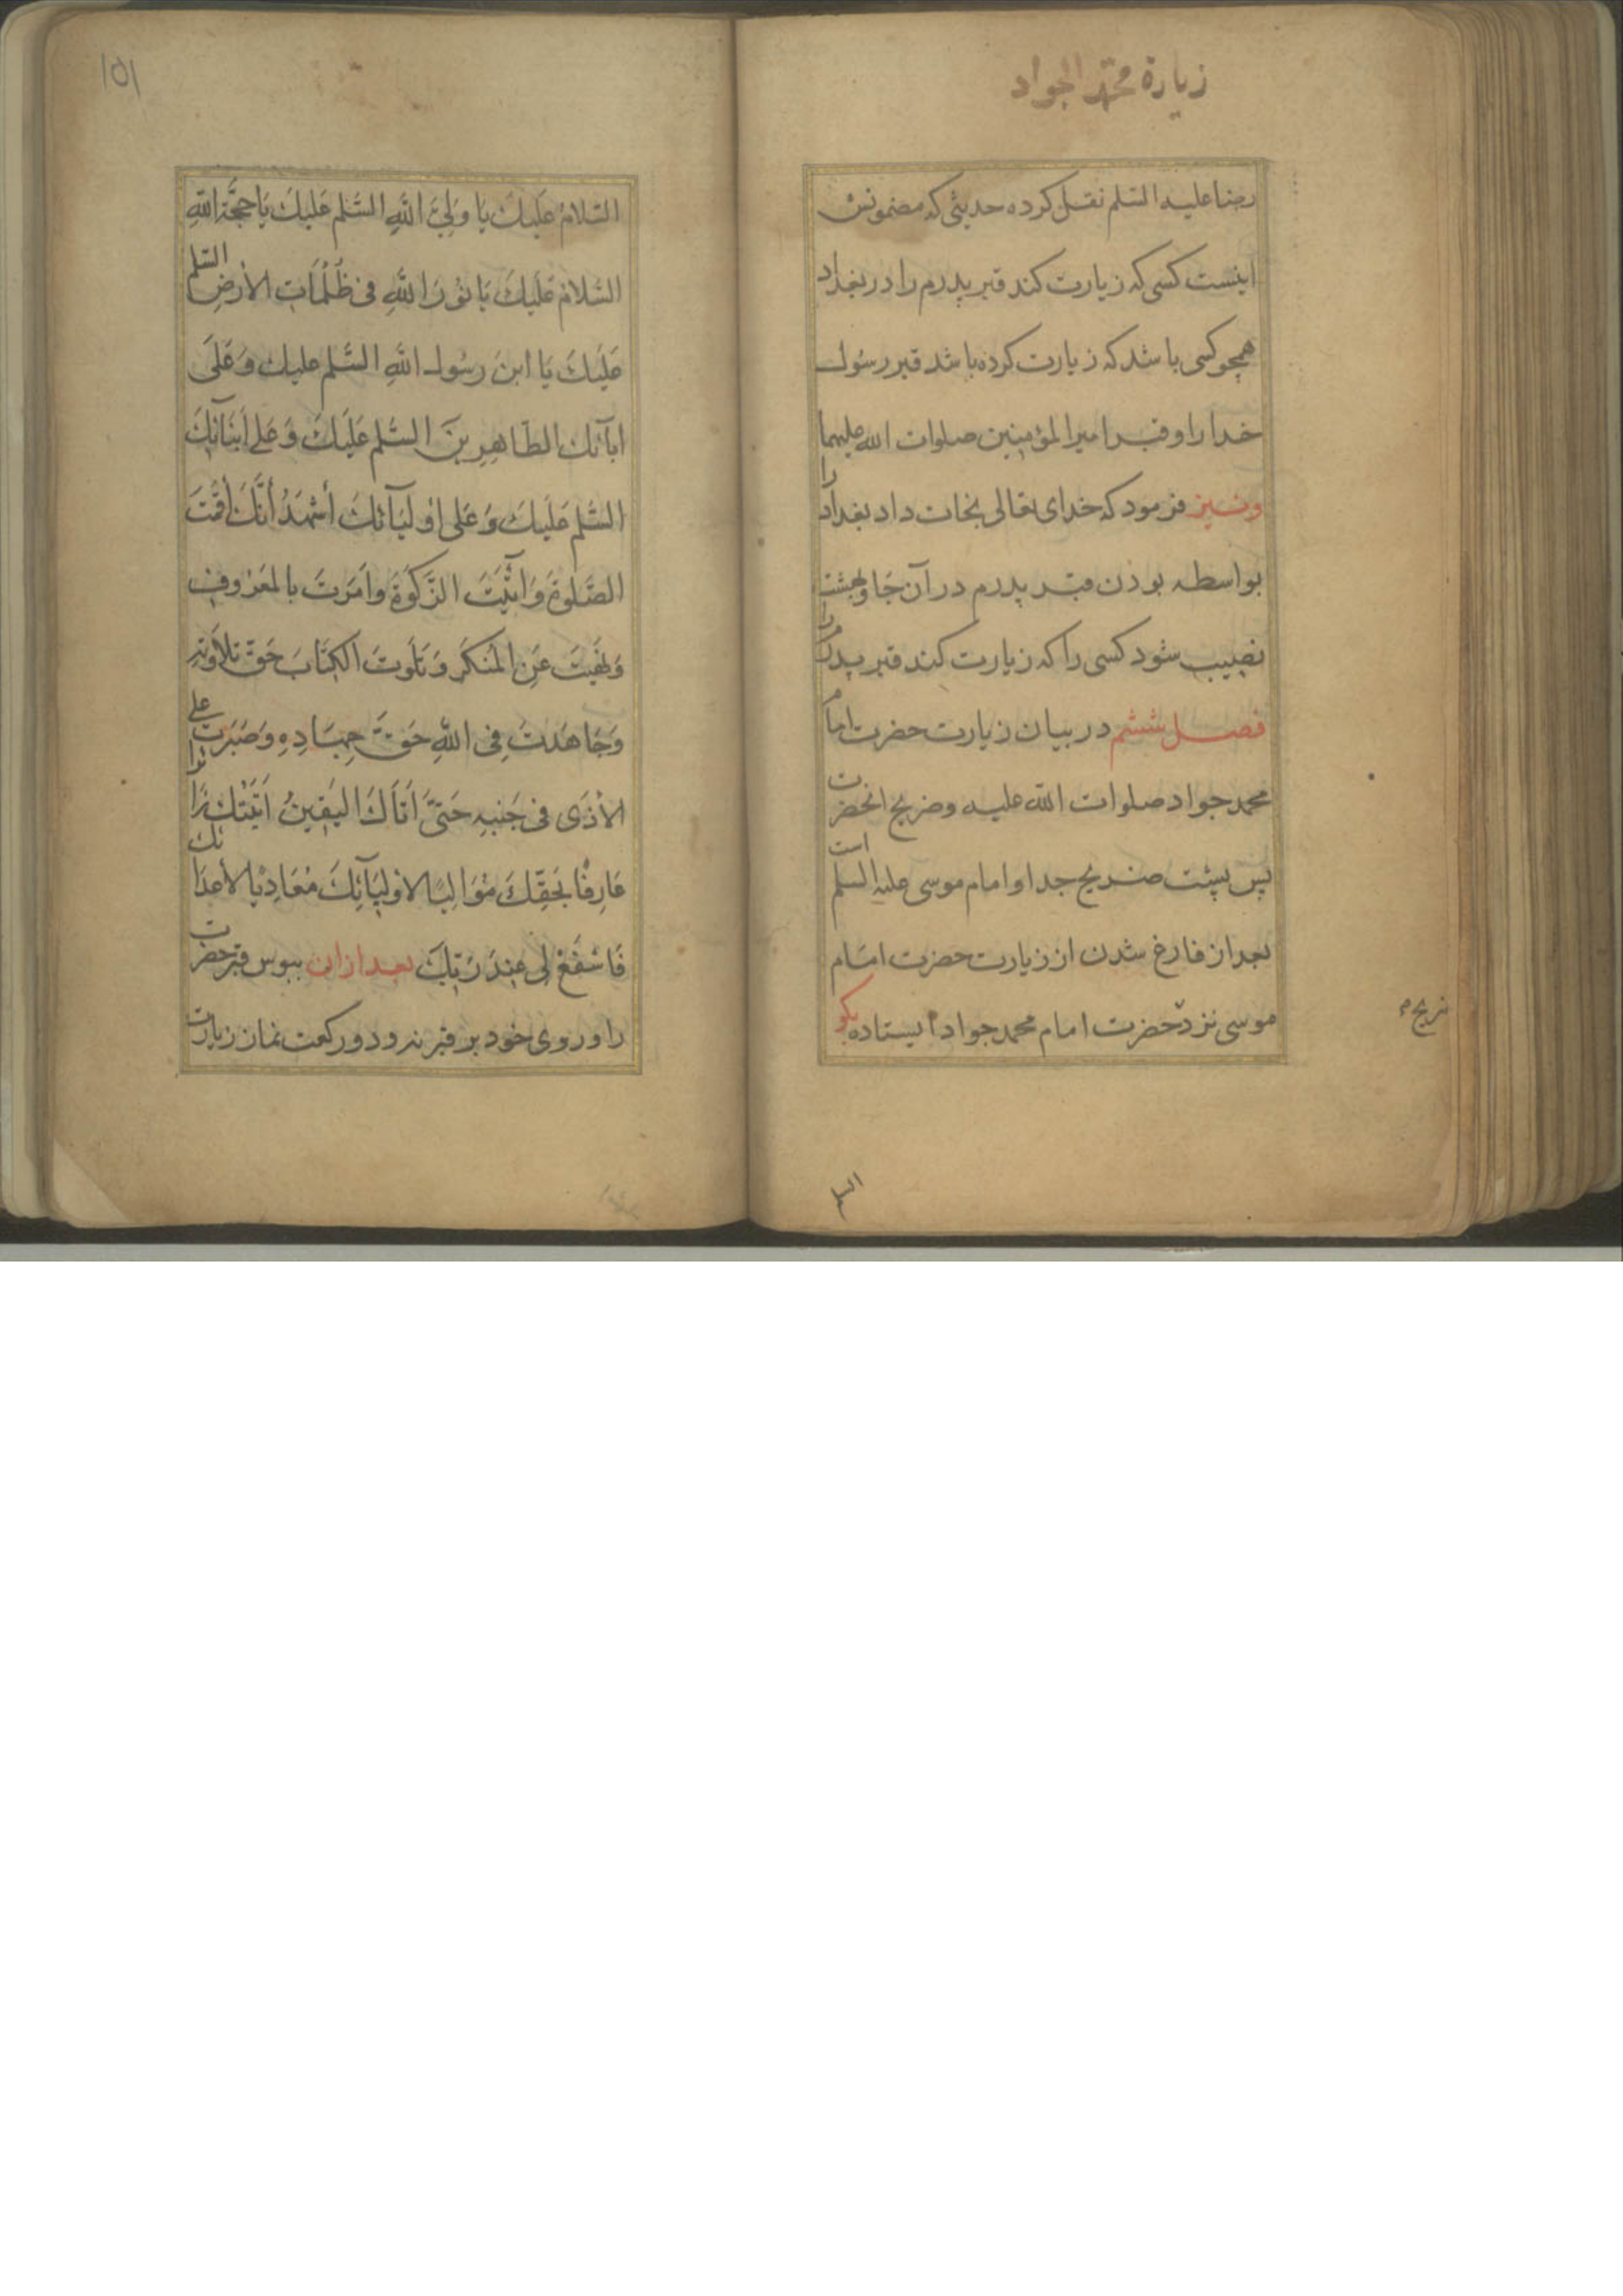 زيارة محمد الجواد
رضا عليه السلم نقل کرده حدیثی که مضمونش
اینست کسی که زیارت کند قبر پدرم را در بغداد
همچو کسی باشد که زیارت کرده باشد قبر رسول
خدا را و قبر امیرالمؤمنین صلوات الله علیهما
ونیز فرمود که خدای تعالی نجات داد بغداد را
بواسطه بودن قبر پدرم در آن جا و بهشت
نصیب شود کسی را که زیارت کند قبر پدرم را
فصل ششم در بیان زیارت حضرت امام
محمد جواد صلوات الله علیه وضریح انحضرت
پس پشت ضریح جد او امام موسی علیه السلم است
بعد از فارغ شدن از زیارت حضرت امام
موسی نزد حضرت امام محمد جواد ایستاده بکو
ضریح
السلا
١٥١
السَّلامُ عَلَيكَ يَا وَلِيَّ اللَّهِ السَّلم عَلَيكَ يَا حجَّةَ اللهِ
السَّلامُ عَلَيكَ يَا نُورَ اللَّهِ فى ظُلُمَاتِ الأرضِ السّلم
عَلَيكَ يَا ابنَ رسُول اللَّهِ السَّلم عليك وَعَلَى
ابآئك الطَّاهِرِينَ السَّلم عَلَيكَ وَعَلى أبنَائِكَ
السَّلم عَلَيكَ وَعَلى اوليَآئكَ أشهَدُ أنَّكَ أقَمتَ
الصَّلوةَ وَاتَيتَ الزَّكوةَ وامَرتَ بالمَعرُوفِ
وَنَهَيتَ عَنِ المُنكَرِ وَتَلَوتَ الكِتَابَ حَقَّ تِلاوَتِهِ
وَجَاهَدتَ فِى اللهِ حَقَّ جِهَادِهِ وَصَبَرتَ على
الأذَى فى جَنبِهِ حَتىَّ اَتَاكَ اليَقِينُ اَتَيتُكَ زَائرا
عَارِفًا بحَقِّكَ مُوَاليًا لاوليَآئِكَ مُعَادِيًا لأعدَائك
فَاشفَعْ لِى عِندَ رَبِّكَ بعد ازان ببوس قبر حضرت
را و روی خود بر قبر نه و دو رکعت نماز زیارت